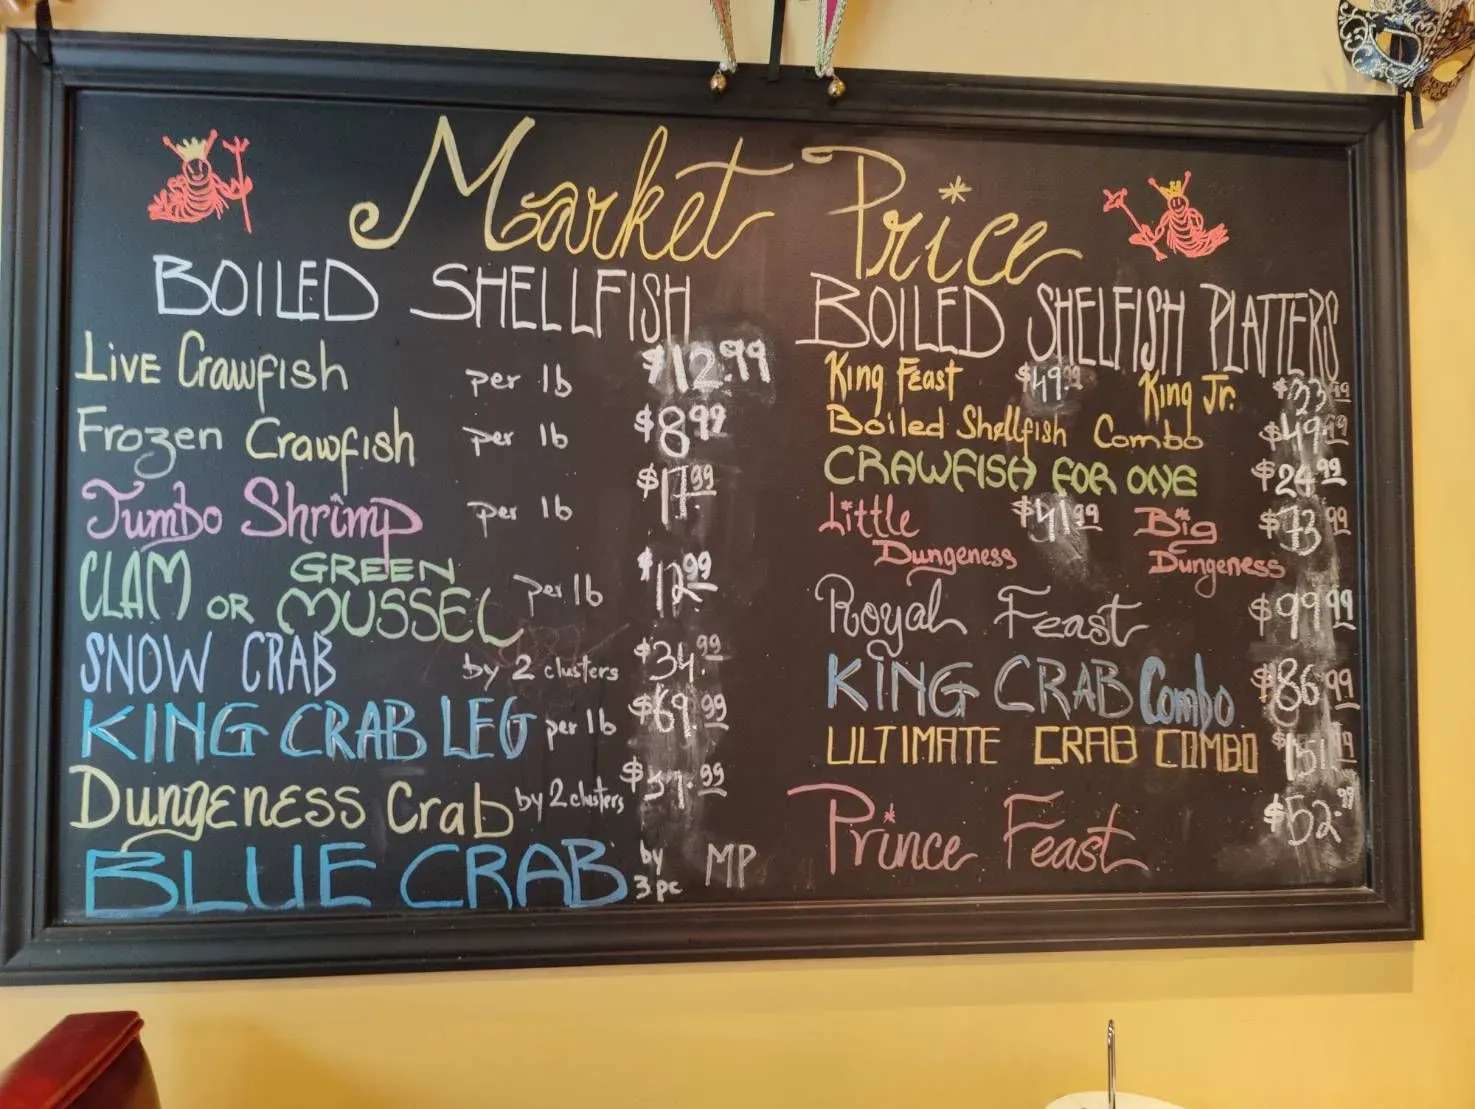 Market Price
BOILED SHELLFISH
Live Crawfish per lb $12.99
Frozen Crawfish per lb $8.99
Jumbo Shrimp per lb $17.99
CLAM OR GREEN MUSSEL per lb $12.99
SNOW CRAB by 2 clusters $34.99
KING CRAB LEG per lb $69.99
Dungeness Crab by 2 clusters
BLUE CRAB by 3 pc MP
BOILED SHELFISH PLATTERS
King Feast $49.99 King Jr.
Boiled Shellfish Combo $49.99
CRAWFISH FOR ONE $24.99
Little Dungeness $41.99 Big Dungeness $73.99
Royal Feast $99.99
KING CRAB Combo $86.99
ULTIMATE CRAB COMBO
Prince Feast $52.99